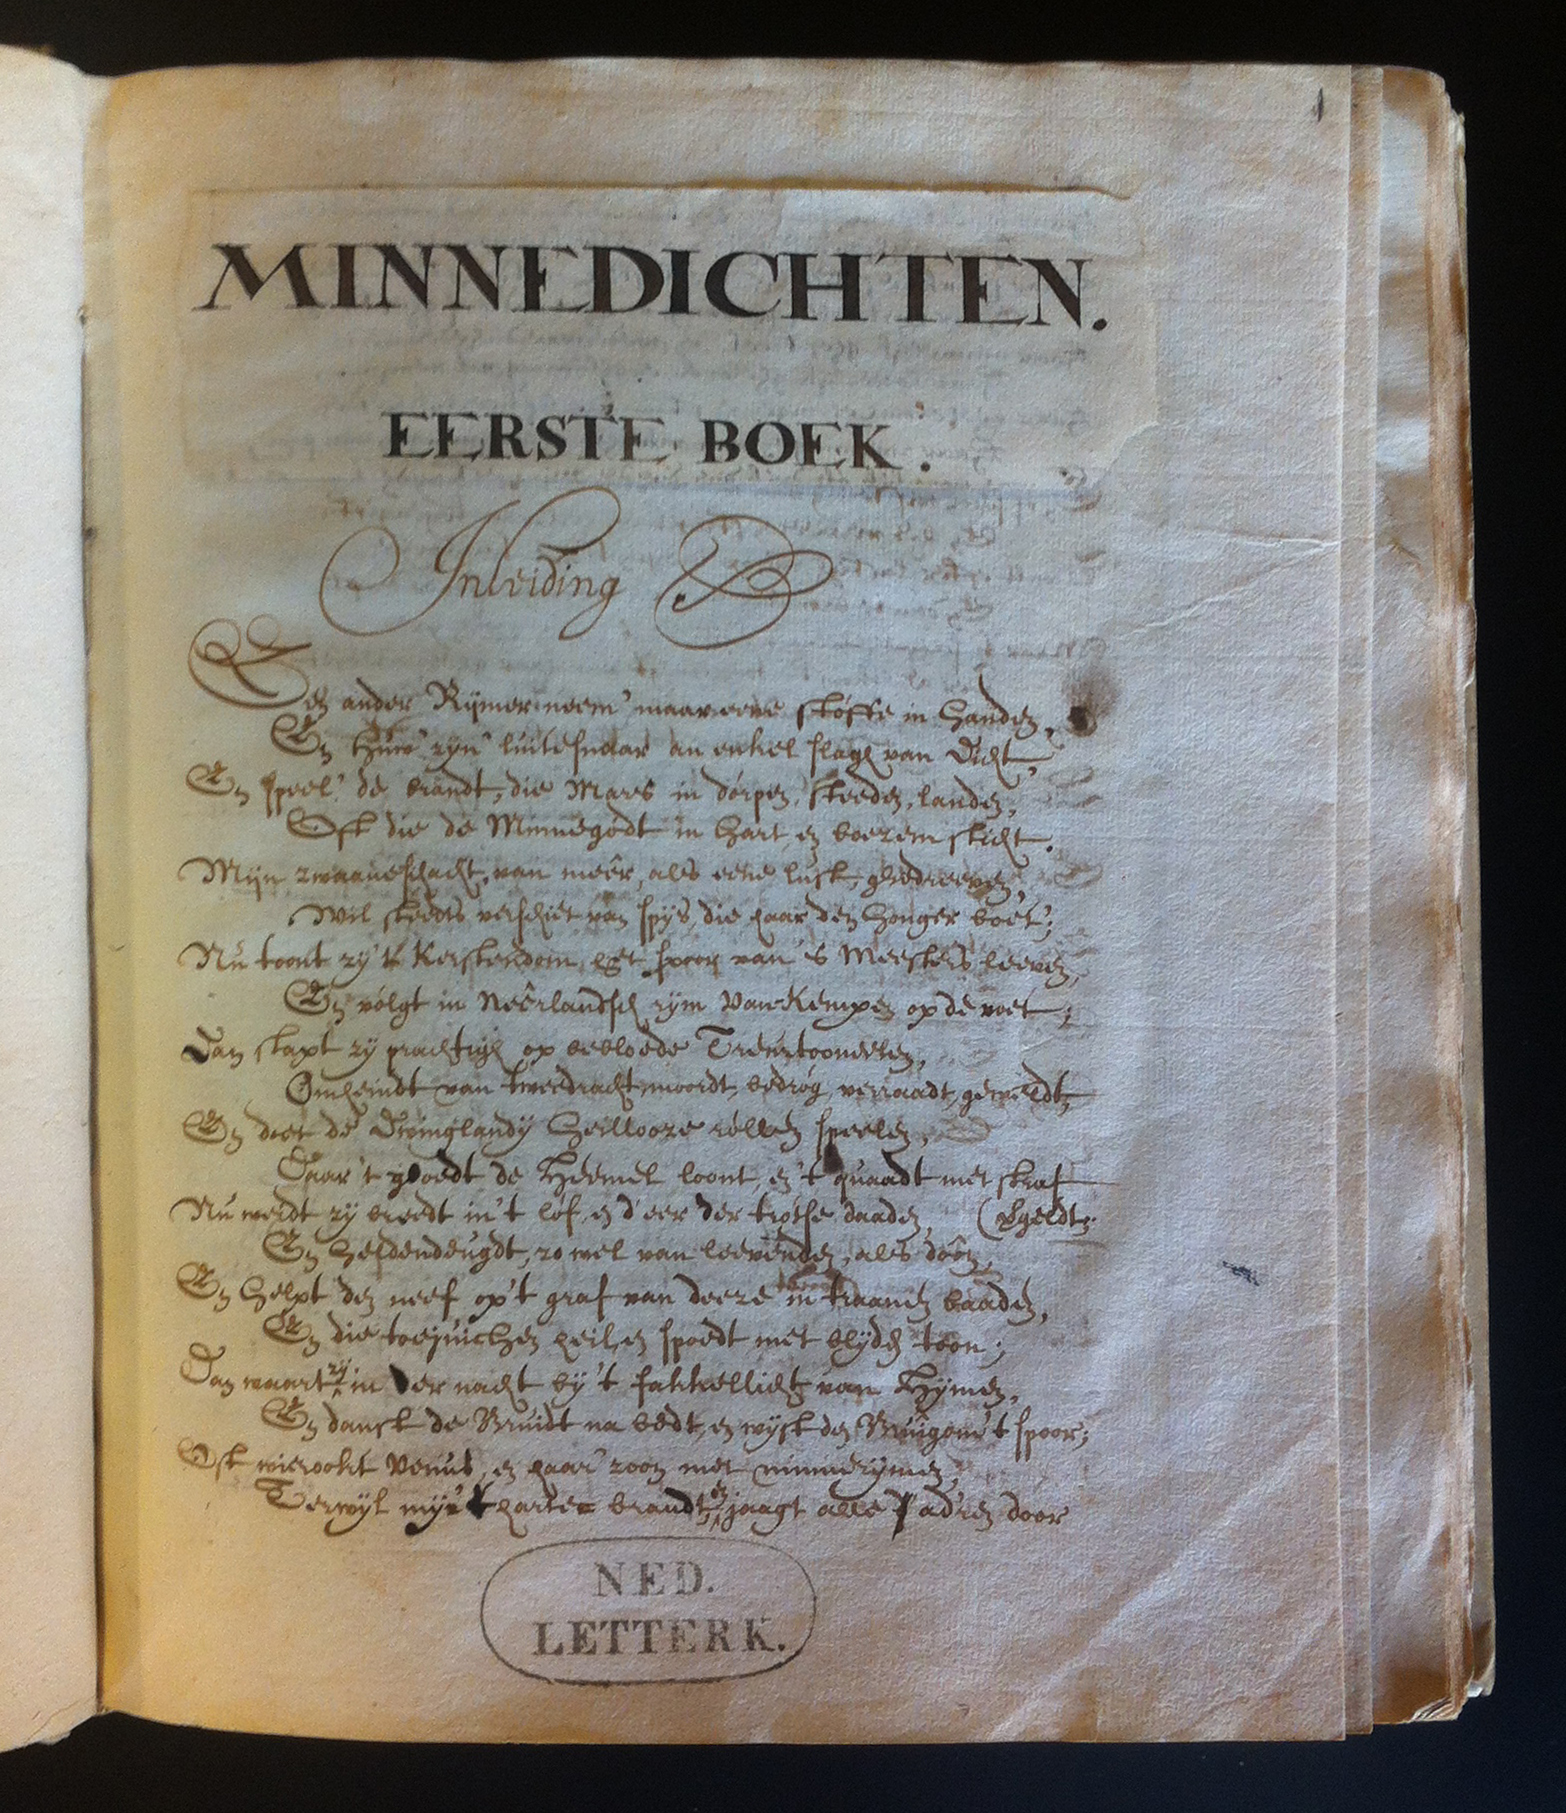 1
MINNEDICHTEN.
EERSTE BOEK.
Inleiding
Een ander Rymer neem' maar eene stoffe in handen,
En huw' zyn' luitesnaar an enkel slagh van dicht,
En speel' de brandt, die Mars in dorpen, steeden, landen,
Oft die de Minnegodt in hart en boezem sticht.
Mijn zwaaneschacht, van meêr, als eene lust, gedreeven,
Wil steedts verschiet van spys, die haar den honger boet;
Nu toont zy 't Kerstendom het spoor van 's Meesters leeven,
En volgt in Neêrlandsch rijm Van Kempen op de voet;
Dan stapt zy prachtigh op bebloede Treurtooneelen,
Omheindt van tweedracht, moordt, bedrog, verraadt, geweldt,
En doet de Dwinglandy heillooze rollen speelen,
Daar 't goedt de Heemel loont, en 't quaadt met straf
Nu weidt zy breedt in 't lof, en d'eer der trotse daaden, (vgeldt;
En heldendeugdt, zo wel van leevenden, als doôn,
En helpt den neef op 't graf van deeze in traanen baaden,
En die toejuichen heil, en spoedt met blyden toon;
Dan waart zy in der nacht by 't fakkellicht van Hymen,
En danst de Bruidt na bedt, en wyst den Bruigom 't spoor;
Oft wierookt Venus, en haar' zoon met minnerymen,
Terwyl myn harte brandt, en jaagt alle adren door
NED.
LETTERK.